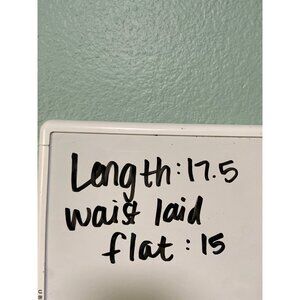 Length: 17.5
waist laid
flat: 15